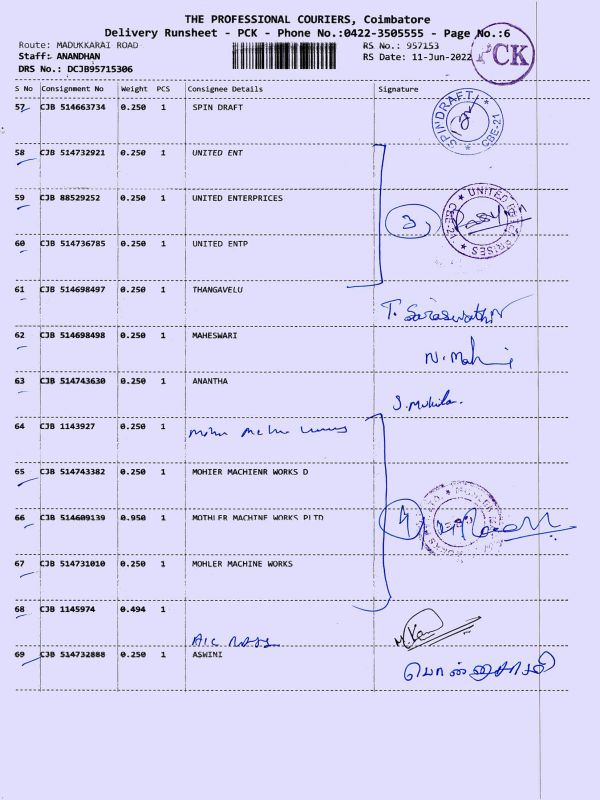 THE PROFESSIONAL COURIERS, Coimbatore
Delivery Runsheet - PCK - Phone No.:0422-3505555 - Page No.:6
Route: MADUKKARAI ROAD RS No.: 957153
Staff: ANANDHAN RS Date: 11-Jun-2022
PCK
DRS No.: DCJB95715306
S No Consignment No Weight PCS Consignee Details Signature
57 CJB 514663734 0.250 1 SPIN DRAFT
SPIN DRAFT CBE-21
58 CJB 514732921 0.250 1 UNITED ENT
59 CJB 88529252 0.250 1 UNITED ENTERPRICES
3
60 CJB 514736785 0.250 1 UNITED ENTP
61 CJB 514698497 0.250 1 THANGAVELU
T. Saraswathi
62 CJB 514698498 0.250 1 MAHESWARI
63 CJB 514743630 0.250 1 ANANTHA
64 CJB 1143927 0.250 1
65 CJB 514743382 0.250 1 MOHIER MACHIENR WORKS D
66 CJB 514609139 0.950 1 MOTHLER MACHINE WORKS PLTD
4
67 CJB 514731010 0.250 1 MOHLER MACHINE WORKS
68 CJB 1145974 0.494 1
69 CJB 514732888 0.250 1 ASWINI